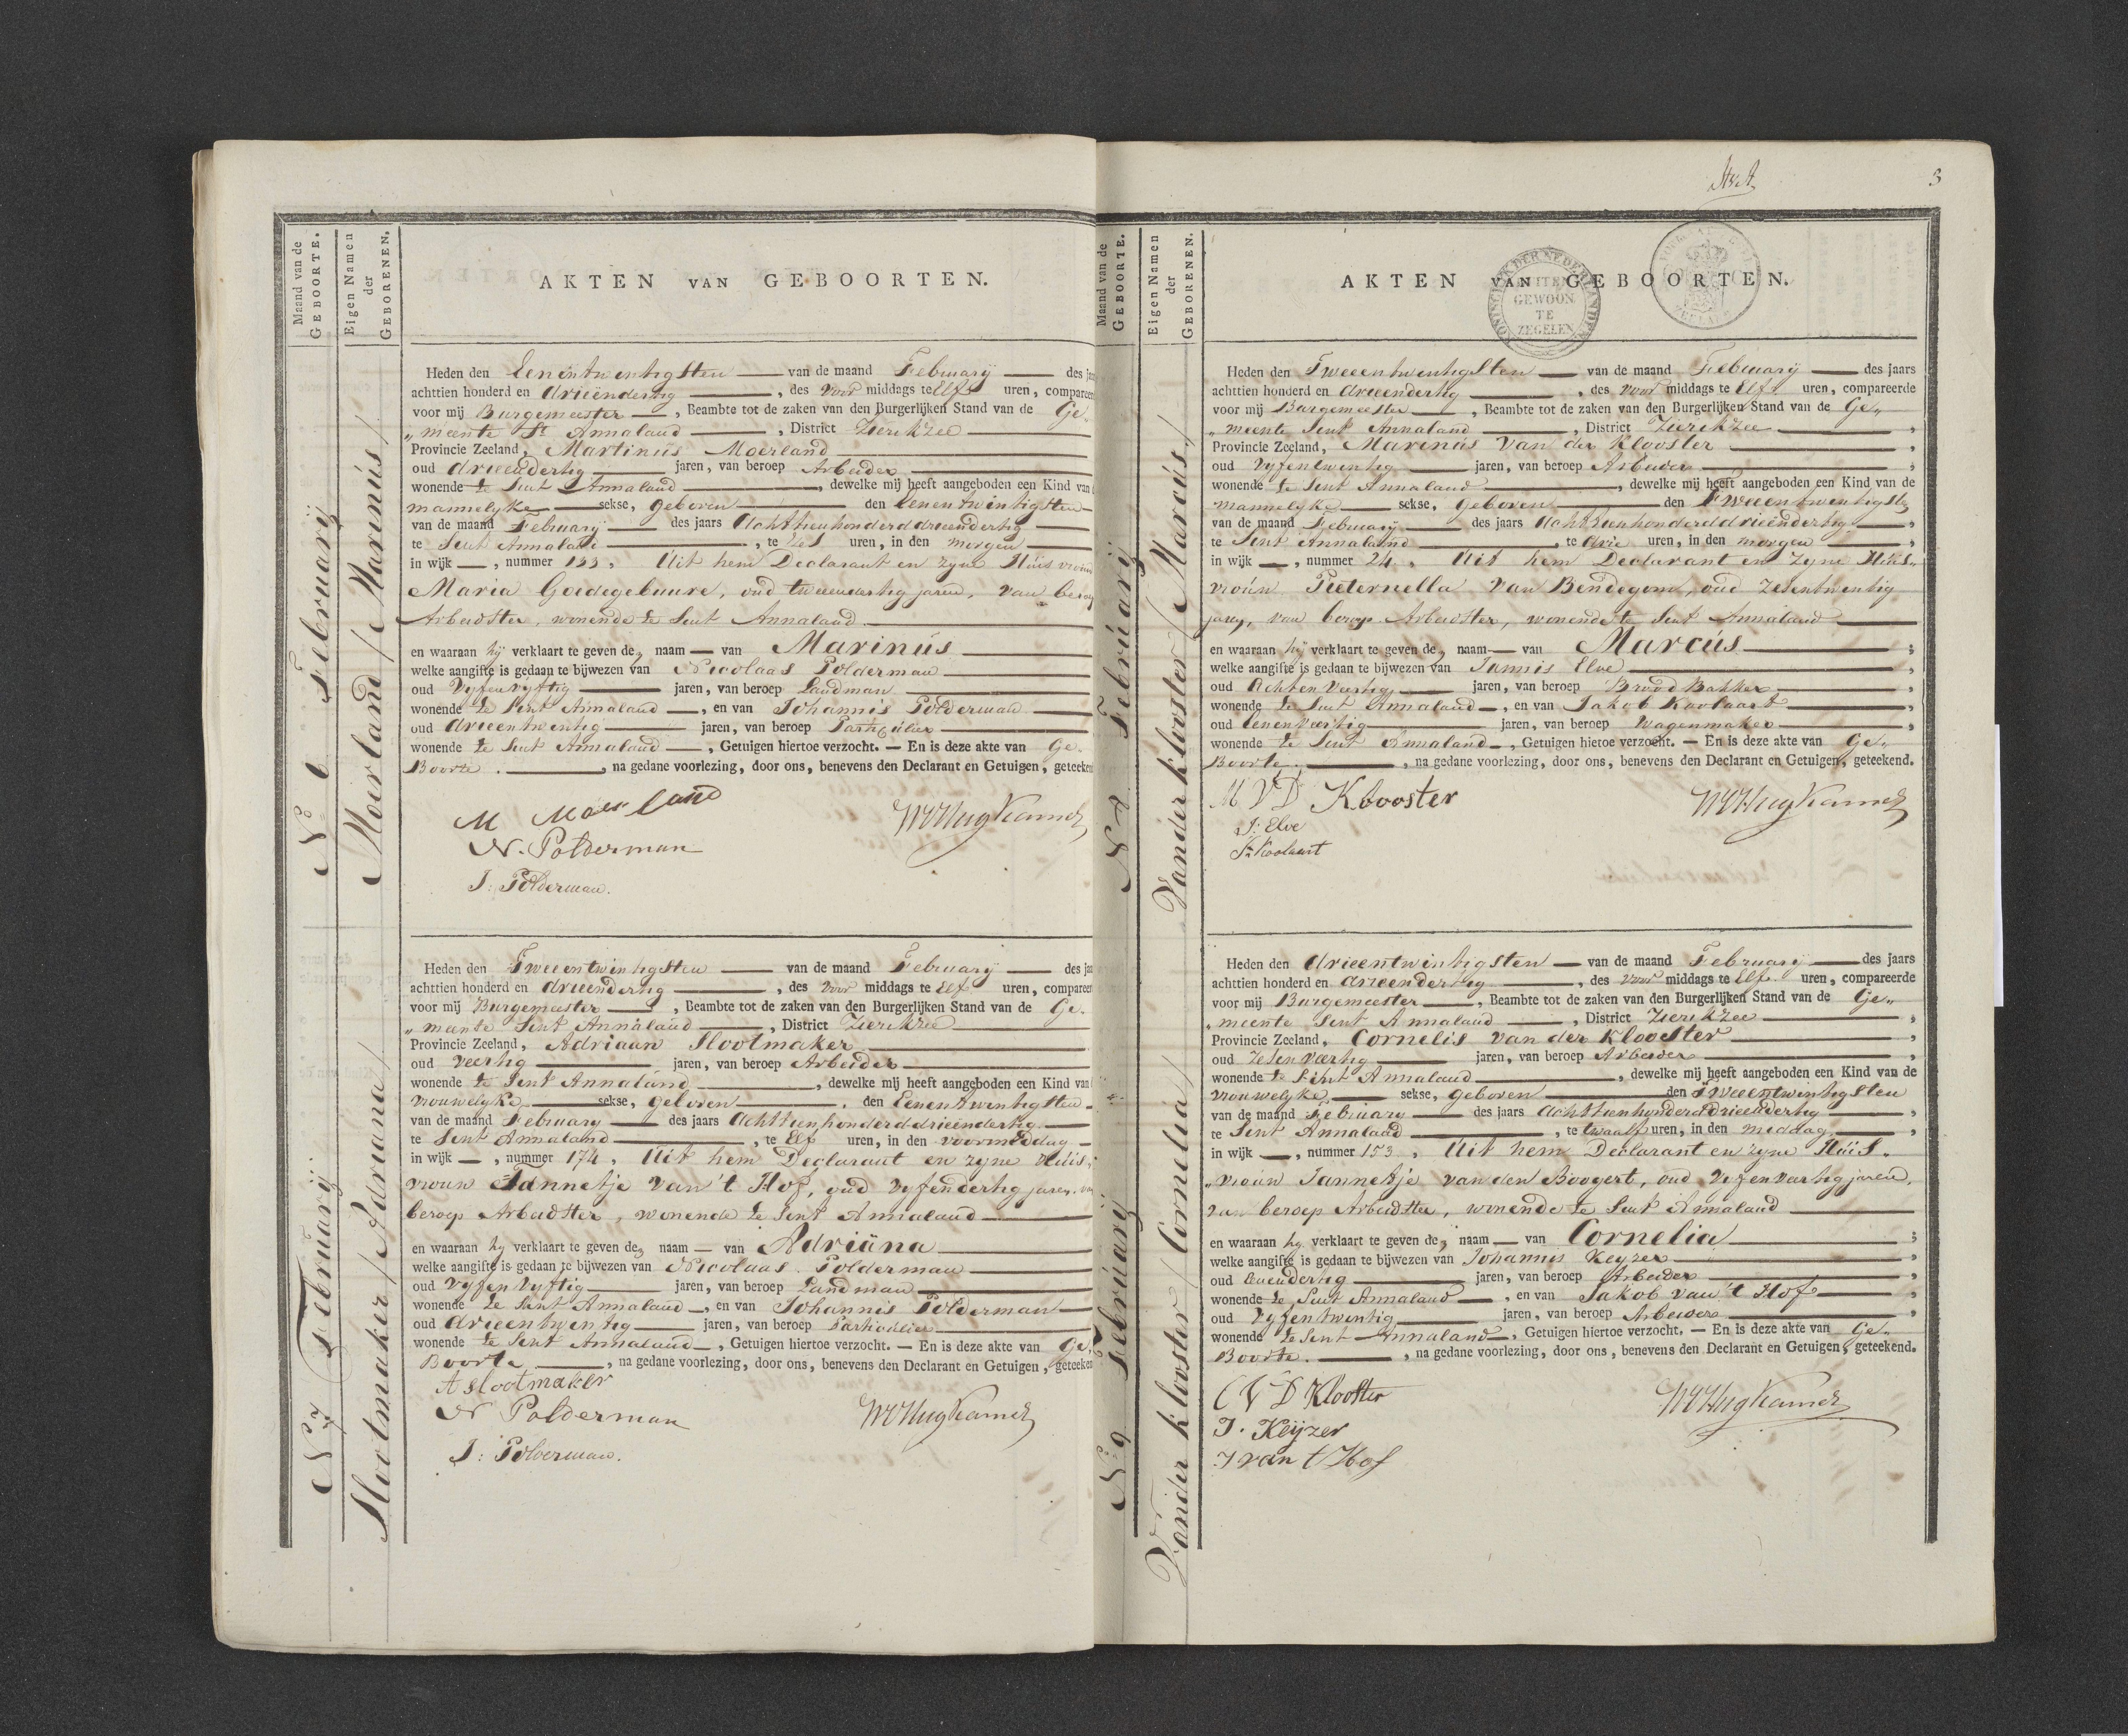 Maand van de
GEBOORTE.
Eigen Namen
der
GEBORENEN.
AKTEN VAN GEBOORTEN.
No 6 Februarij
Moerland / Marinus /
Heden den Eenentwintigsten van de maand February des jaa
achttien honderd en drieëndertig, des voor middags te Elf uren, compareer
voor mij Burgemeester, Beambte tot de zaken van den Burgerlijken Stand van de Ge„
„meente St Annaland, District Zierikzee
Provincie Zeeland, Martinus Moerland
oud drieendertig jaren, van beroep Arbeider
wonende te Sint Annaland, dewelke mij heeft aangeboden een Kind van d
mannelyke sekse, geboren den Eenentwintigsten
van de maand February des jaars Achttienhonderddrieendertig
te Sint Annaland, te zes uren, in den morgen
in wijk —, nummer 133, Uit hem Declarant en zyne Huisvrouw
Maria Goedegebuure, oud tweeendertig jaren, van beroep
Arbeidster, wonende te Sint Annaland
en waaraan hij verklaart te geven de, naam — van Marinus
welke aangifte is gedaan te bijwezen van Nicolaas Polderman
oud Vyfenvyftig jaren, van beroep Landman
wonende te Sint Annaland, en van Johannis Polderman
oud drieentwintig jaren, van beroep Particulier
wonende te Sint Annaland, Getuigen hiertoe verzocht. — En is deze akte van Ge„
Boorte, na gedane voorlezing, door ons, benevens den Declarant en Getuigen, geteeken
M Moerland
N. Polderman
J: Polderman.
WVHugKamer
No 7 Februarij
Slootmaker / Adriana /
Heden den Tweeentwintigsten van de maand February des jaa
achttien honderd en drieendertig, des voor middags te Elf uren, compareer
voor mij Burgemeester, Beambte tot de zaken van den Burgerlijken Stand van de Ge„
„meente Sint Annaland, District Zierikzee
Provincie Zeeland, Adriaan Slootmaker
oud veertig jaren, van beroep Arbeider
wonende te Sint Annaland, dewelke mij heeft aangeboden een Kind van
vrouwelyke sekse, geboren den Eenentwintigsten
van de maand February des jaars Achttienhonderddrieëndertig
te Sint Annaland, te Elf uren, in den voormiddag
in wijk —, nummer 174, Uit hem Declarant en zyne Huis„
vrouw Tannetje van 't Hof, oud vyfendertig jaren, van
beroep Arbeidster, wonende te Sint Annaland
en waaraan hy verklaart te geven de, naam — van Adriäna
welke aangifte is gedaan te bijwezen van Nicolaas Polderman
oud vyfenvyftig jaren, van beroep Landman
wonende te Sint Annaland, en van Johannis Polderman
oud drieentwintig jaren, van beroep Particulier
wonende te Sint Annaland, Getuigen hiertoe verzocht. — En is deze akte van Ge„
Boorte, na gedane voorlezing, door ons, benevens den Declarant en Getuigen, geteeken
A slootmaker
N Polderman
J: Polderman.
WVHugKamer
3
Maand van de
GEBOORTE.
Eigen Namen
der
GEBORENEN.
AKTEN VAN GEBOORTEN.
KONINGRIJK DER NEDERLANDEN
BUITEN
GEWOON
TE
ZEGELEN
ZEELAND
No 8 Februarij
Vander klooster / Marcus /
Heden den Tweeentwintigsten van de maand February des jaars
achttien honderd en drieendertig, des voor middags te Elf uren, compareerde
voor mij Burgemeester, Beambte tot de zaken van den Burgerlijken Stand van de Ge„
„meente Sint Annaland, District Zierikzee,
Provincie Zeeland, Marinus van der Klooster,
oud vyfentwintig jaren, van beroep Arbeider,
wonende te Sint Annaland, dewelke mij heeft aangeboden een Kind van de
mannelyke sekse, geboren den Tweeentwintigste
van de maand February des jaars Achttienhonderddrieëndertig,
te Sint Annaland, te drie uren, in den morgen,
in wijk —, nummer 24, Uit hem Declarant en zyne Huis„
vrouw Pieternella van Bendegom, oud zesentwintig
jaren, van beroep Arbeidster, wonende te Sint Annaland
en waaraan hij verklaart te geven de, naam — van Marcus;
welke aangifte is gedaan te bijwezen van Jannis Elve,
oud Achtenveertig jaren, van beroep Brood Bakker,
wonende te Sint Annaland, en van Jakob Koolaart,
oud Eenenveertig jaren, van beroep Wagenmaker,
wonende te Sint Annaland, Getuigen hietoe verzocht. — En is deze akte van Ge„
Boorte, na gedane voorlezing, door ons, benevens den Declarant en Getuigen, geteekend.
M V D Klooster
J: Elve
Jb Koolaart
WVHugKamer
No 9 Februarij
Vander klooster / Cornelia /
Heden den drieentwintigsten van de maand February des jaars
achttien honderd en drieendertig, des voor middags te Elf uren, compareerde
voor mij Burgemeester, Beambte tot de zaken van den Burgerlijken Stand van de Ge„
„meente Sint Annaland, District Zierikzee,
Provincie Zeeland, Cornelis van der Klooster,
oud zesenveertig jaren, van beroep Arbeider,
wonende te Sint Annaland, dewelke mij heeft aangeboden een Kind van de
vrouwelyke sekse, geboren den Tweeentwintigsten
van de maand February des jaars Achttienhonderddrieendertig,
te Sint Annaland, te twaalf uren, in den middag,
in wijk —, nummer 153, Uit hem Declarant en zyne Huis„
„vrouw Jannetje van den Boogert, oud Vyfenveertig jaren,
van beroep Arbeidster, wonende te Sint Annaland
en waaraan hy verklaart te geven de, naam — van Cornelia;
welke aangifte is gedaan te bijwezen van Johannis Keyzer,
oud eenendertig jaren, van beroep Arbeider,
wonende te Sint Annaland, en van Jakob van 't Hof,
oud vyfentwintig jaren, van beroep Arbeider,
wonende te Sint Annaland, Getuigen hiertoe verzocht. — En is deze akte van Ge„
Boorte, na gedane voorlezing, door ons, benevens den Declarant en Getuigen, geteekend.
C V D Klooster
J. Keijzer
J van t Hof
WVHugKamer